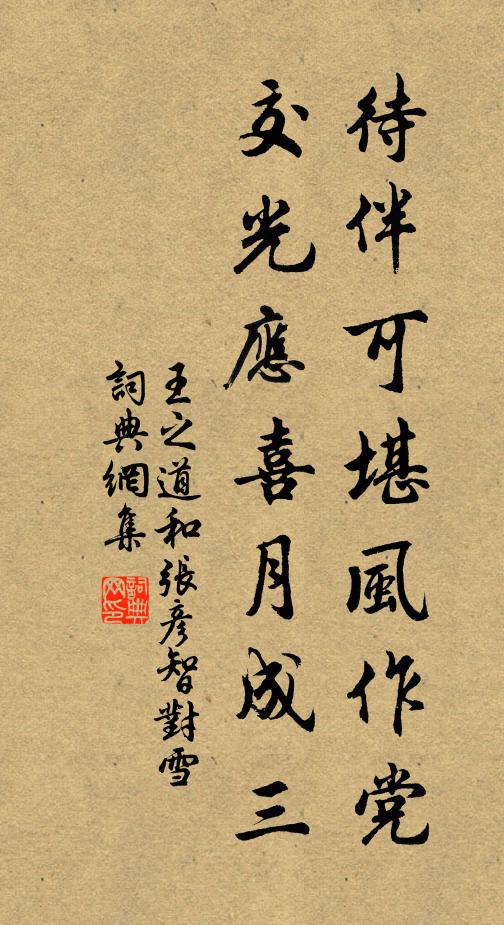 待伴可堪風作党
交光應喜月成三
王之道和張彥智對雪
詞典網集
詞典網印